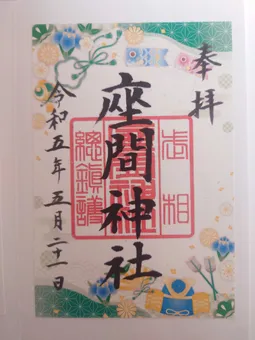 奉拝
座間神社
相武
總鎮護
令和五年五月二十一日